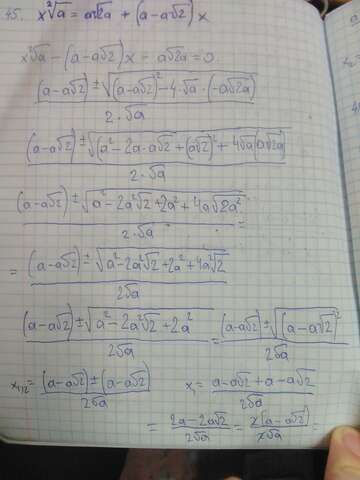 45. x²√a = a√2a + (a-a√2)x
x²√a - (a-a√2)x - a√2a = 0
(a-a√2) ± √((a-a√2)² - 4·√a·(-a√2a)) / 2·√a
(a-a√2) ± √(a² - 2a·a√2 + (a√2)² + 4√a(a√2a)) / 2·√a
(a-a√2) ± √(a² - 2a²√2 + 2a² + 4a√2a²) / 2·√a =
= (a-a√2) ± √(a² - 2a²√2 + 2a² + 4a²√2) / 2√a
(a-a√2) ± √(a² - 2a²√2 + 2a²) / 2√a = (a-a√2) ± √((a-a√2)²) / 2√a
x₁,₂ = (a-a√2) ± (a-a√2) / 2√a x₁ = a-a√2 + a-a√2 / 2√a
= 2a-2a√2 / 2√a = 2(a-a√2) / 2√a =